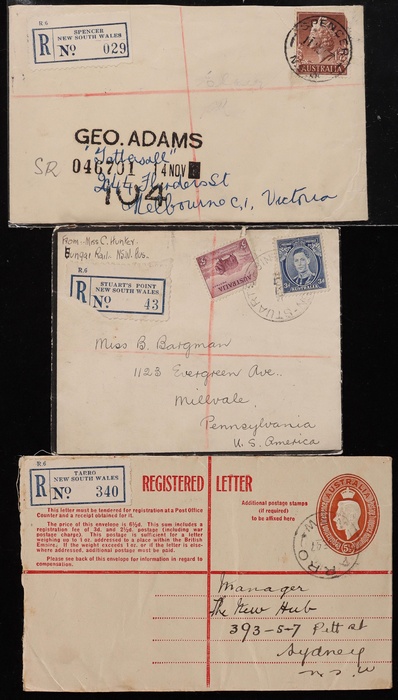 R 6
SPENCER
NEW SOUTH WALES
R No 029
SPENCER
AUSTRALIA
GEO. ADAMS
SR 046701 14 NOV
"Tattersall"
244 Flinders St
104
Melbourne C,1, Victoria
From - Miss C. Hunter
Gungai Rail. N.S.W. Aus.
R.6
STUART'S POINT
NEW SOUTH WALES
R No 43
AUSTRALIA
AUSTRALIA
Miss B. Bargman
1123 Evergreen Ave..
Millvale,
Pennsylvania
U.S. America
R 6
TARRO
NEW SOUTH WALES
R No 340
REGISTERED LETTER
This letter must be tendered for registration at a Post Office
Counter and a receipt obtained for it.
The price of this envelope is 8½d. This sum includes a
registration fee of 3d. and 2½d. postage (including war
postage charge). This postage is sufficient for a letter
weighing up to 1 oz. addressed to a place within the British
Empire. If the weight exceeds 1 oz. or if the letter is else-
where addressed, additional postage must be paid.
Please see back of this envelope for information in regard to
compensation.
Additional postage stamps
(if required)
to be affixed here
AUSTRALIA
TARRO
Manager
The New Hub
393-5-7 Pitt st
Sydney
N.S.W